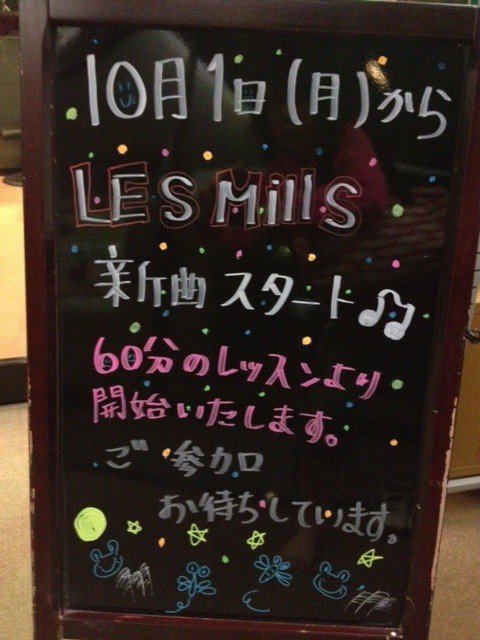 10月1日(月)から
LES MillS
新曲スタート♫
60分のレッスンより
開始いたします。
ご参加
お待ちしています。